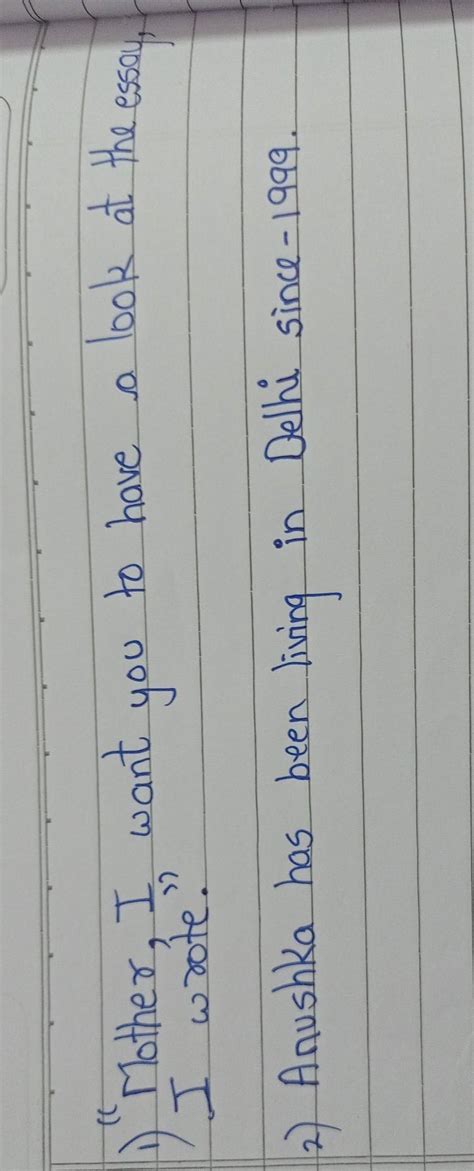 1) “Mother, I want you to have a look at the essay,
I wrote.”
2) Anushka has been living in Delhi since-1999.